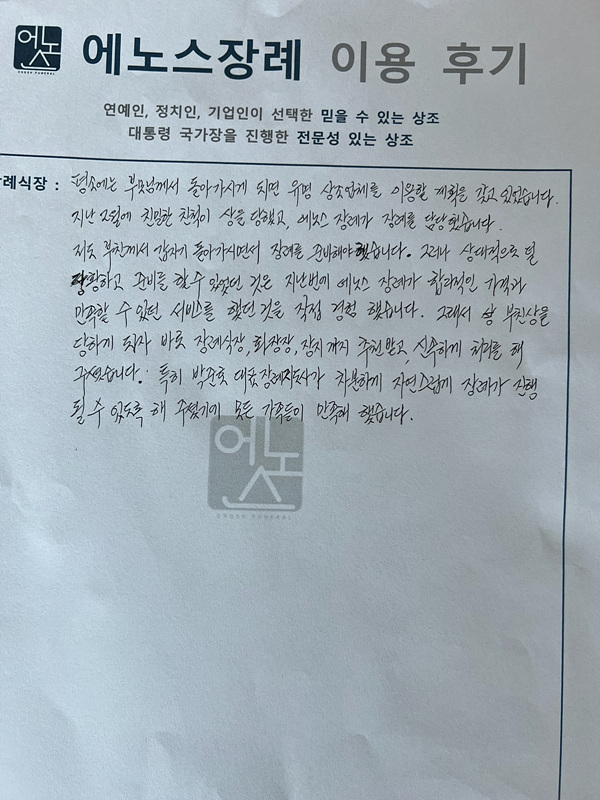 에노스
ENOSH FUNERAL
에노스장례 이용 후기
연예인, 정치인, 기업인이 선택한 믿을 수 있는 상조
대통령 국가장을 진행한 전문성 있는 상조
례식장 : 평소에는 부모님께서 돌아가시게 되면 유명 상조업체를 이용할 계획을 갖고 있었습니다.
지난 2월에 친밀한 친척이 상을 당했고, 에노스 장례가 장례를 담당했습니다.
저도 부친께서 갑자기 돌아가시면서 장례를 준비해야 했습니다. 그러나 상대적으로 덜
당황하고 준비를 할 수 있었던 것은 지난번에 에노스 장례가 합리적인 가격과
만족할 수 있던 서비스를 했던 것을 직접 경험 했습니다. 그래서 부친상을
당하게 되자 바로 장례식장, 화장장, 장지 까지 추천받고 신속하게 처리를 해
주셨습니다. 특히 박준호 대표 장례지도사가 차분하게 자연스럽게 장례가 진행
될 수 있도록 해 주셨기에 모든 가족들이 만족해 했습니다.
에노스
ENOSH FUNERAL